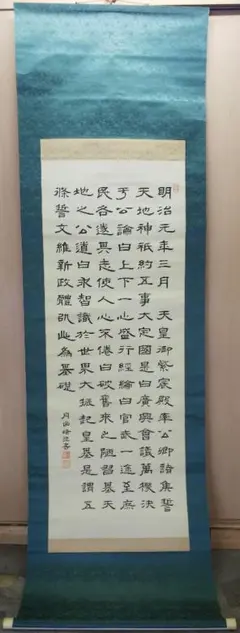 明治元年三月 天皇御紫宸殿率公卿諸誓
天地神祇約五事大定國是曰廣興會議萬機決
于公論曰上下一心盛行經綸曰官武一途至庶
民各遂其志使人心不倦曰破舊來之陋習基天
地之公道曰求智識於世界大振起皇基是謂五
條誓文維新政體即此為基礎